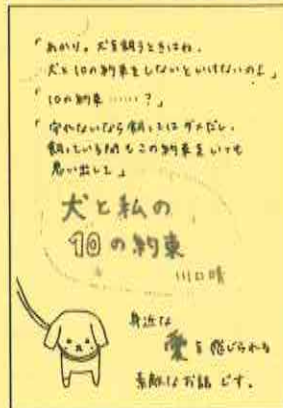 「あかり。犬を飼うときはね、
犬と10の約束をしないといけないのよ」
「10の約束……？」
「守れないなら飼ってはダメだし、
飼っている間もこの約束をいつも
思い出して」
犬と私の
10の約束
川口晴
身近な
愛を感じられる
素敵なお話です。